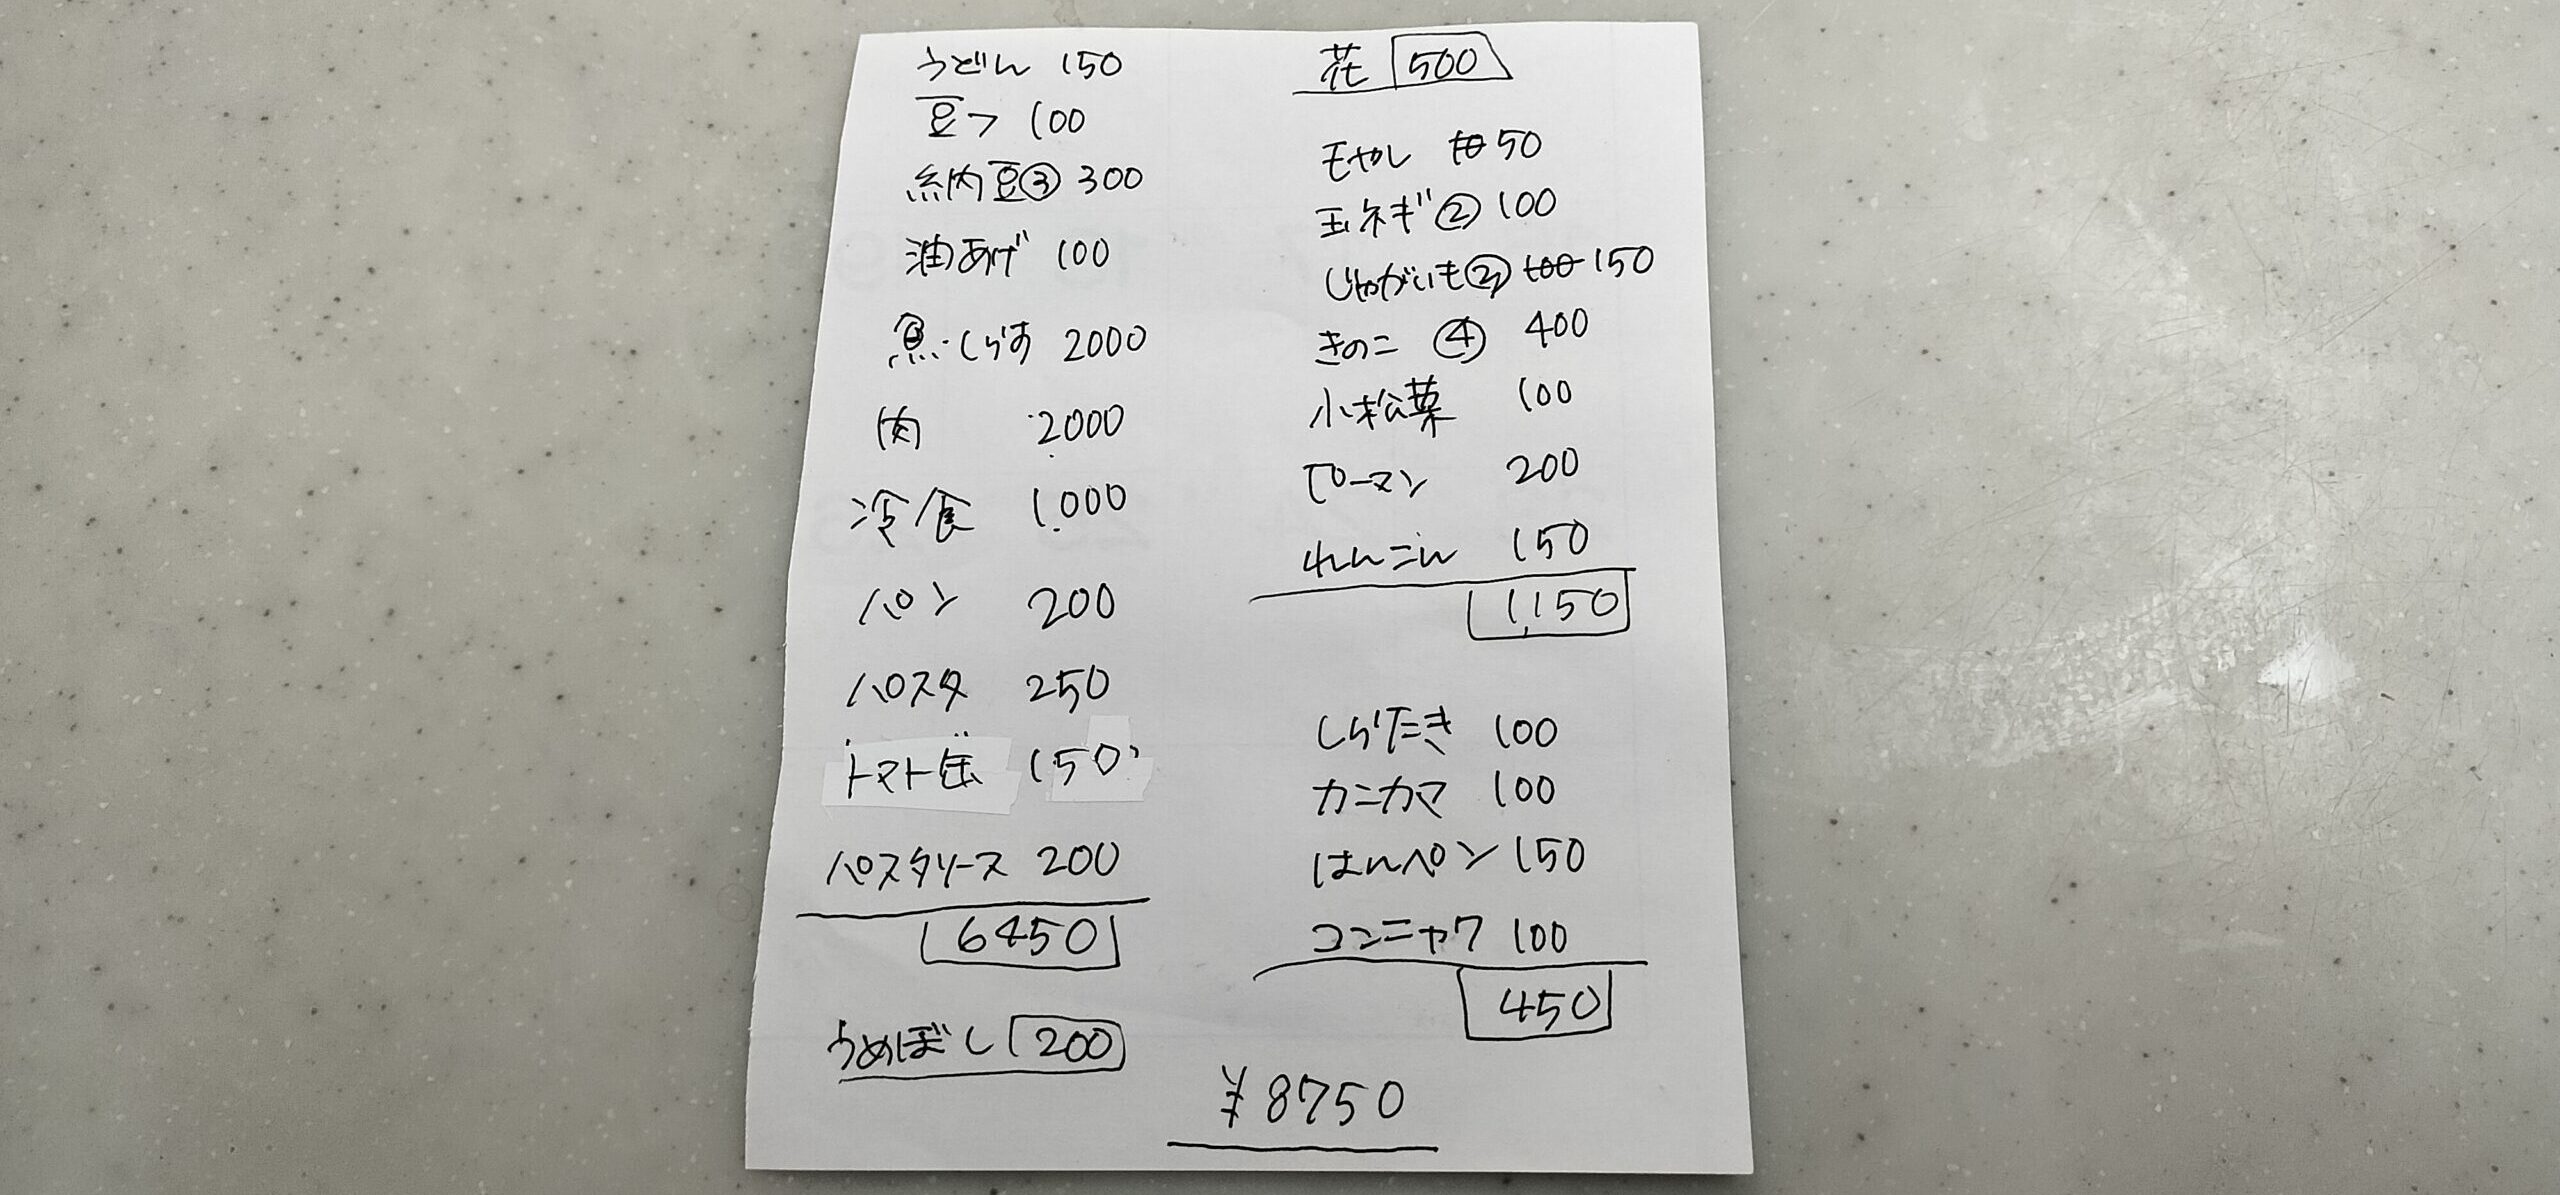 うどん 150
豆フ 100
納豆③ 300
油あげ 100
魚・しらす 2000
肉 2000
冷食 1,000
パン 200
パスタ 250
トマト缶 150
パスタソース 200
6450
うめぼし 200
花 500
モヤし 10 50
玉ネギ② 100
じゃがいも② 100 150
きのこ ④ 400
小松菜 100
ピーマン 200
れんこん 150
1,150
しらたき 100
カニカマ 100
はんペン 150
コンニャク 100
450
¥8750